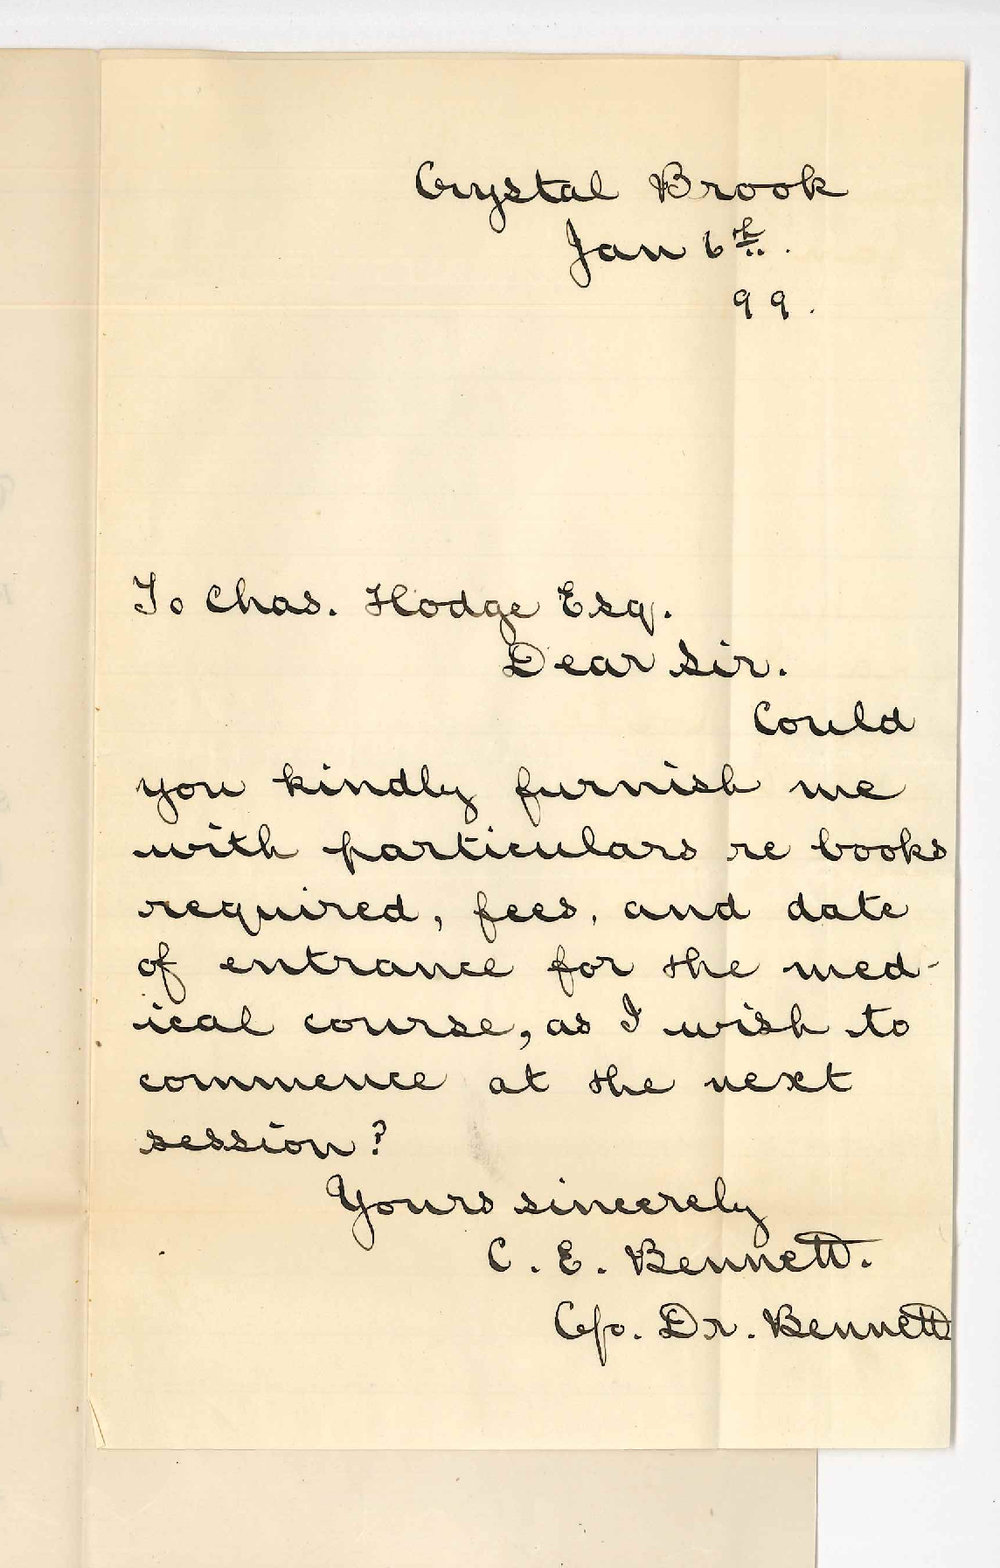 Crystal Brook
Jan 6th.
99.
To Chas. Hodge Esq.
Dear Sir.
Could
you kindly furnish me
with particulars re books
required, fees, and date
of entrance for the med-
ical course, as I wish to
commence at the next
session?
Yours sincerely
C. E. Bennett.
C/o. Dr. Bennett